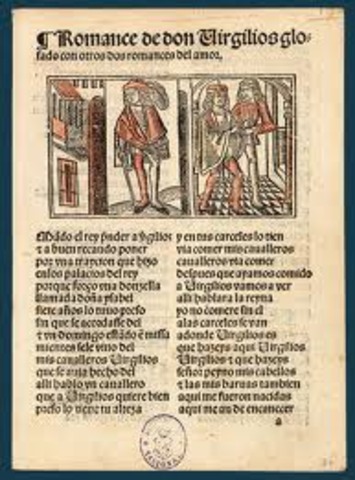 ¶ Romance de don Virgilios glo-
sado con otros dos romances del amor.
Mãdo el rey prender a virgilios
⁊ a buen recaudo poner
por vna traycion que hizo
en los palacios del rey
porque forço vna donzella
llamada doña ysabel
siete años lo tuuo preso
sin que se acordasse del
⁊ vn domingo estãdo ẽ missa
mientes se le vino del
mis caualleros Virgilios
que se auia hecho del
alli hablo vn cauallero
que a Virgilios quiere bien
preso lo tiene tu alteza
y en tus carceles lo tien
via comer mis caualleros
caualleros via comer
despues que ayamos comido
a Virgilios vamos a ver
alli hablara la reyna
yo no comere sin el
a las carceles se van
adonde Virgilios es
que hazeys aqui Virgilios
Virgilios ⁊ que hazeys
señor peyno mis cabellos
⁊ las mis baruas tambien
aqui me fueron nacidas
aqui me an de encanecer
a